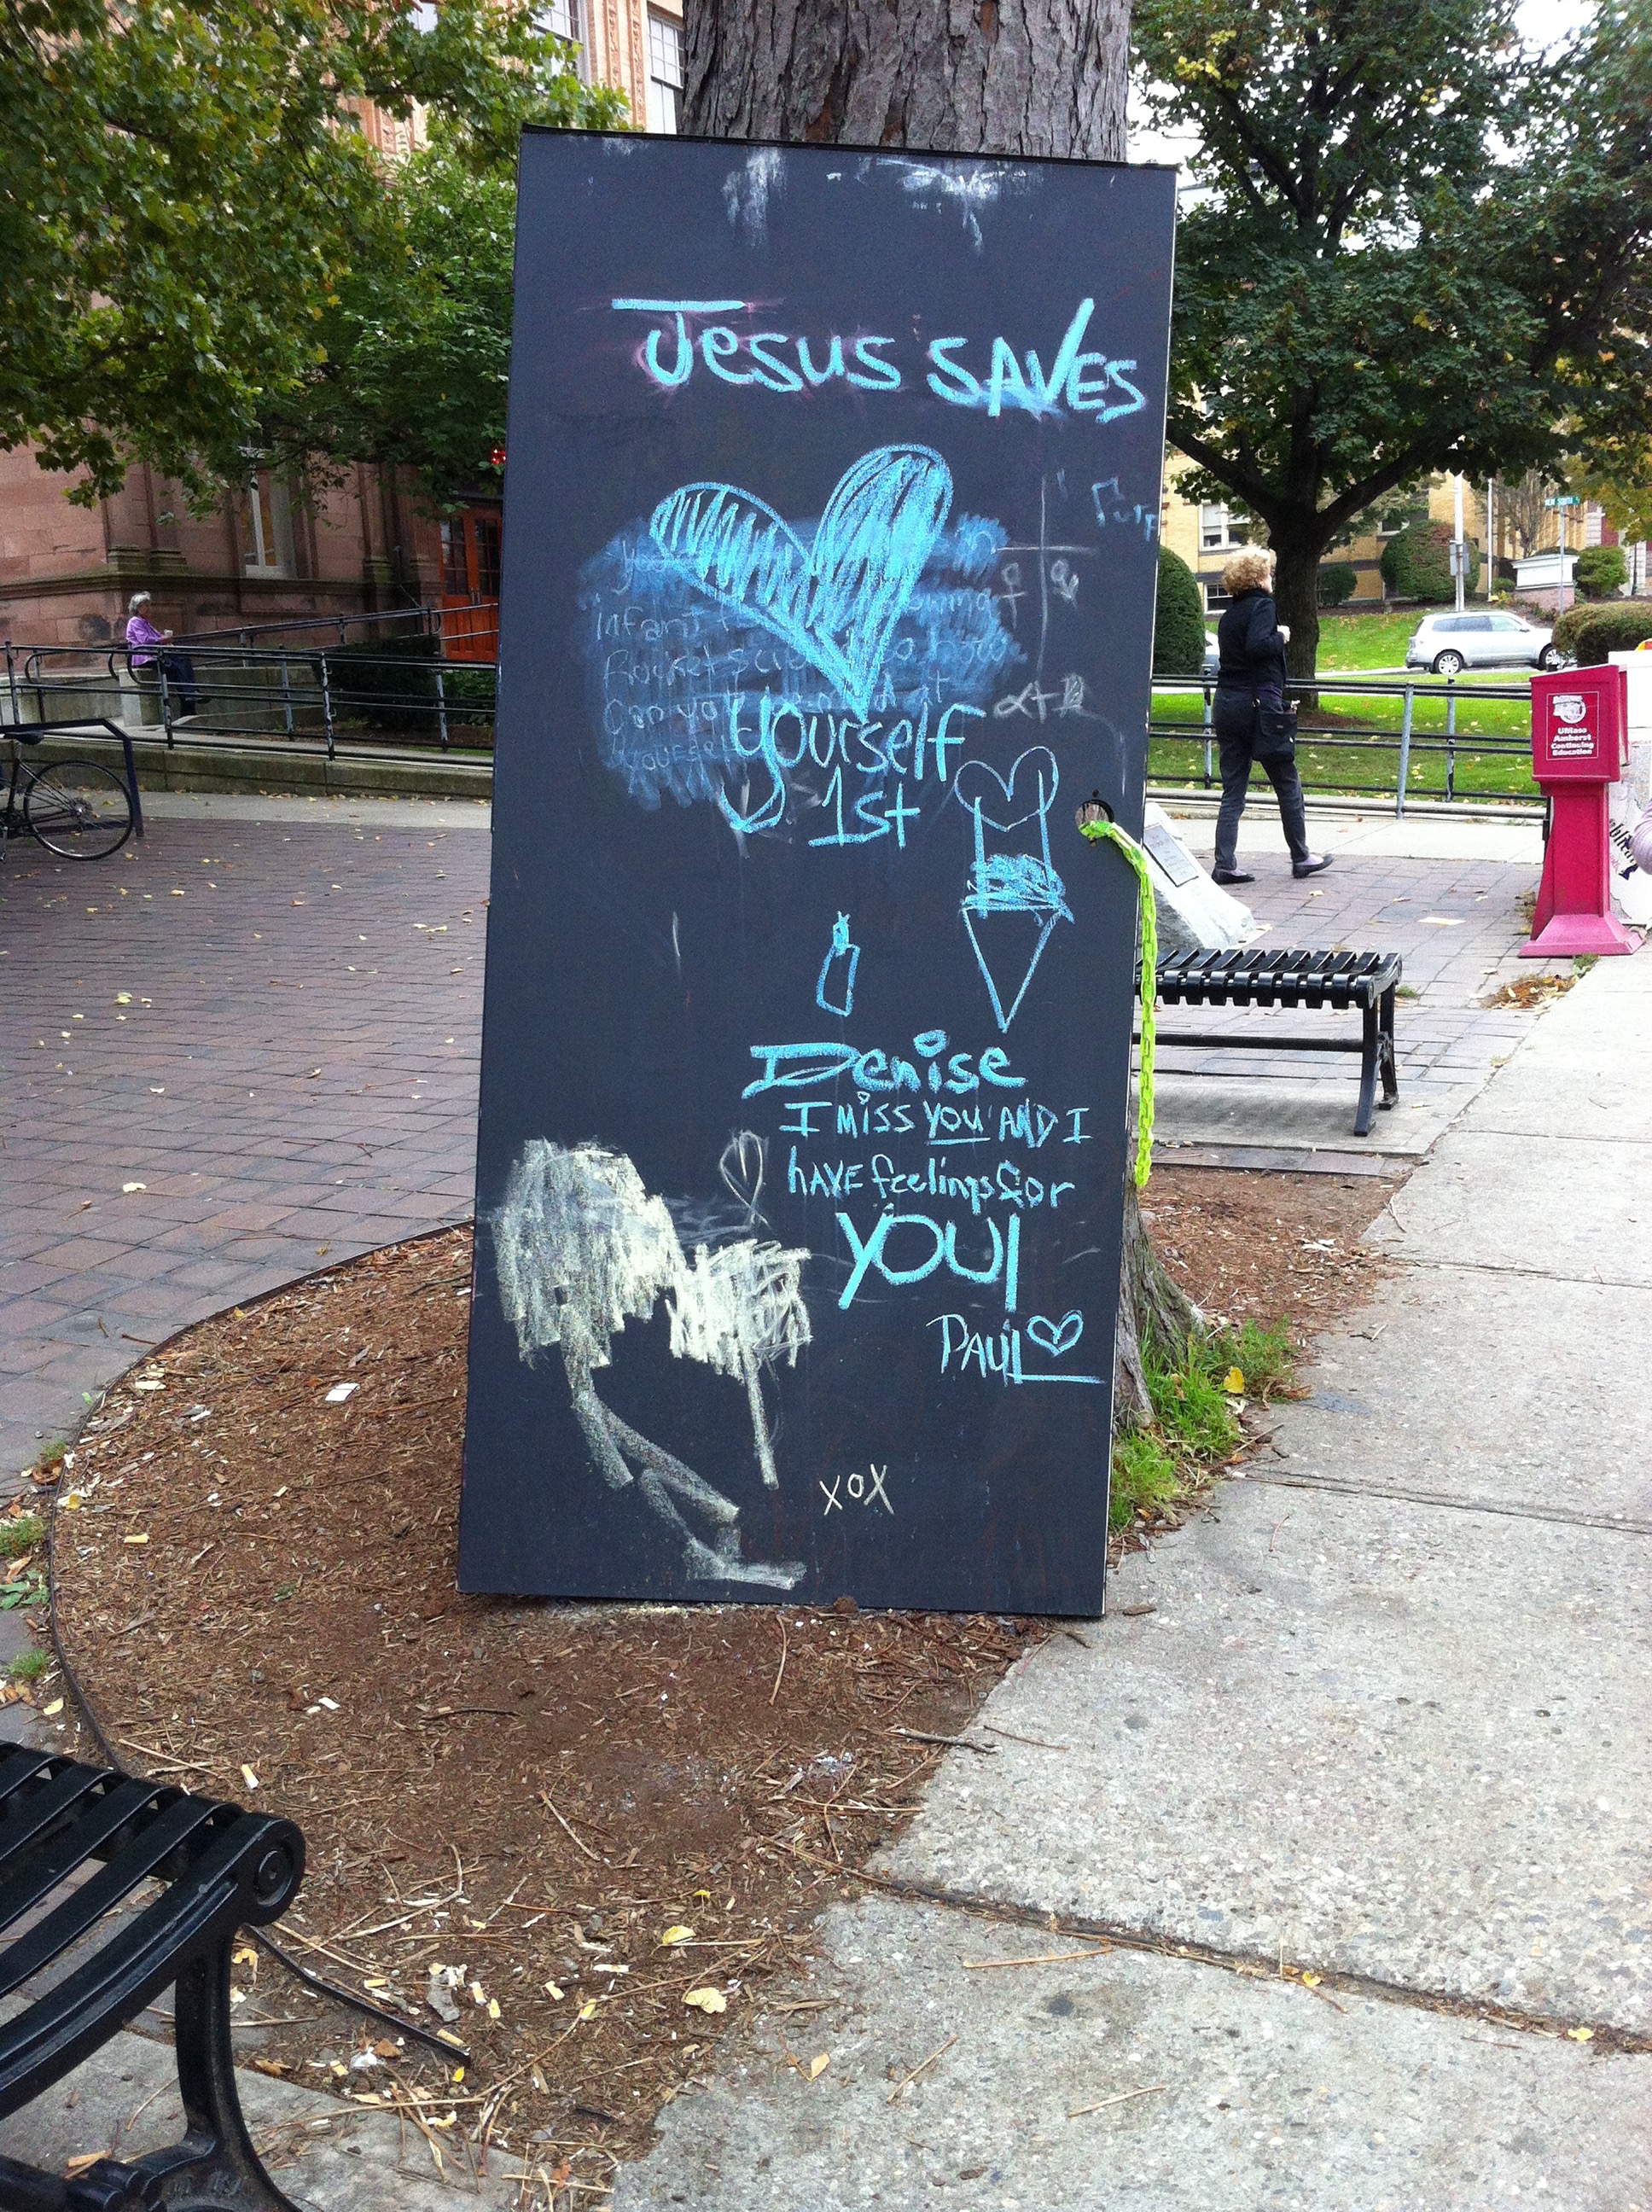 Jesus SAVES
Infant
Rocket science
Can you
yourself
yourself
1st
Denise
I MISS YOU AND I
hAVE feelings for
YOU!
PAUL
XOX
UMass
Amherst
Continuing
Education